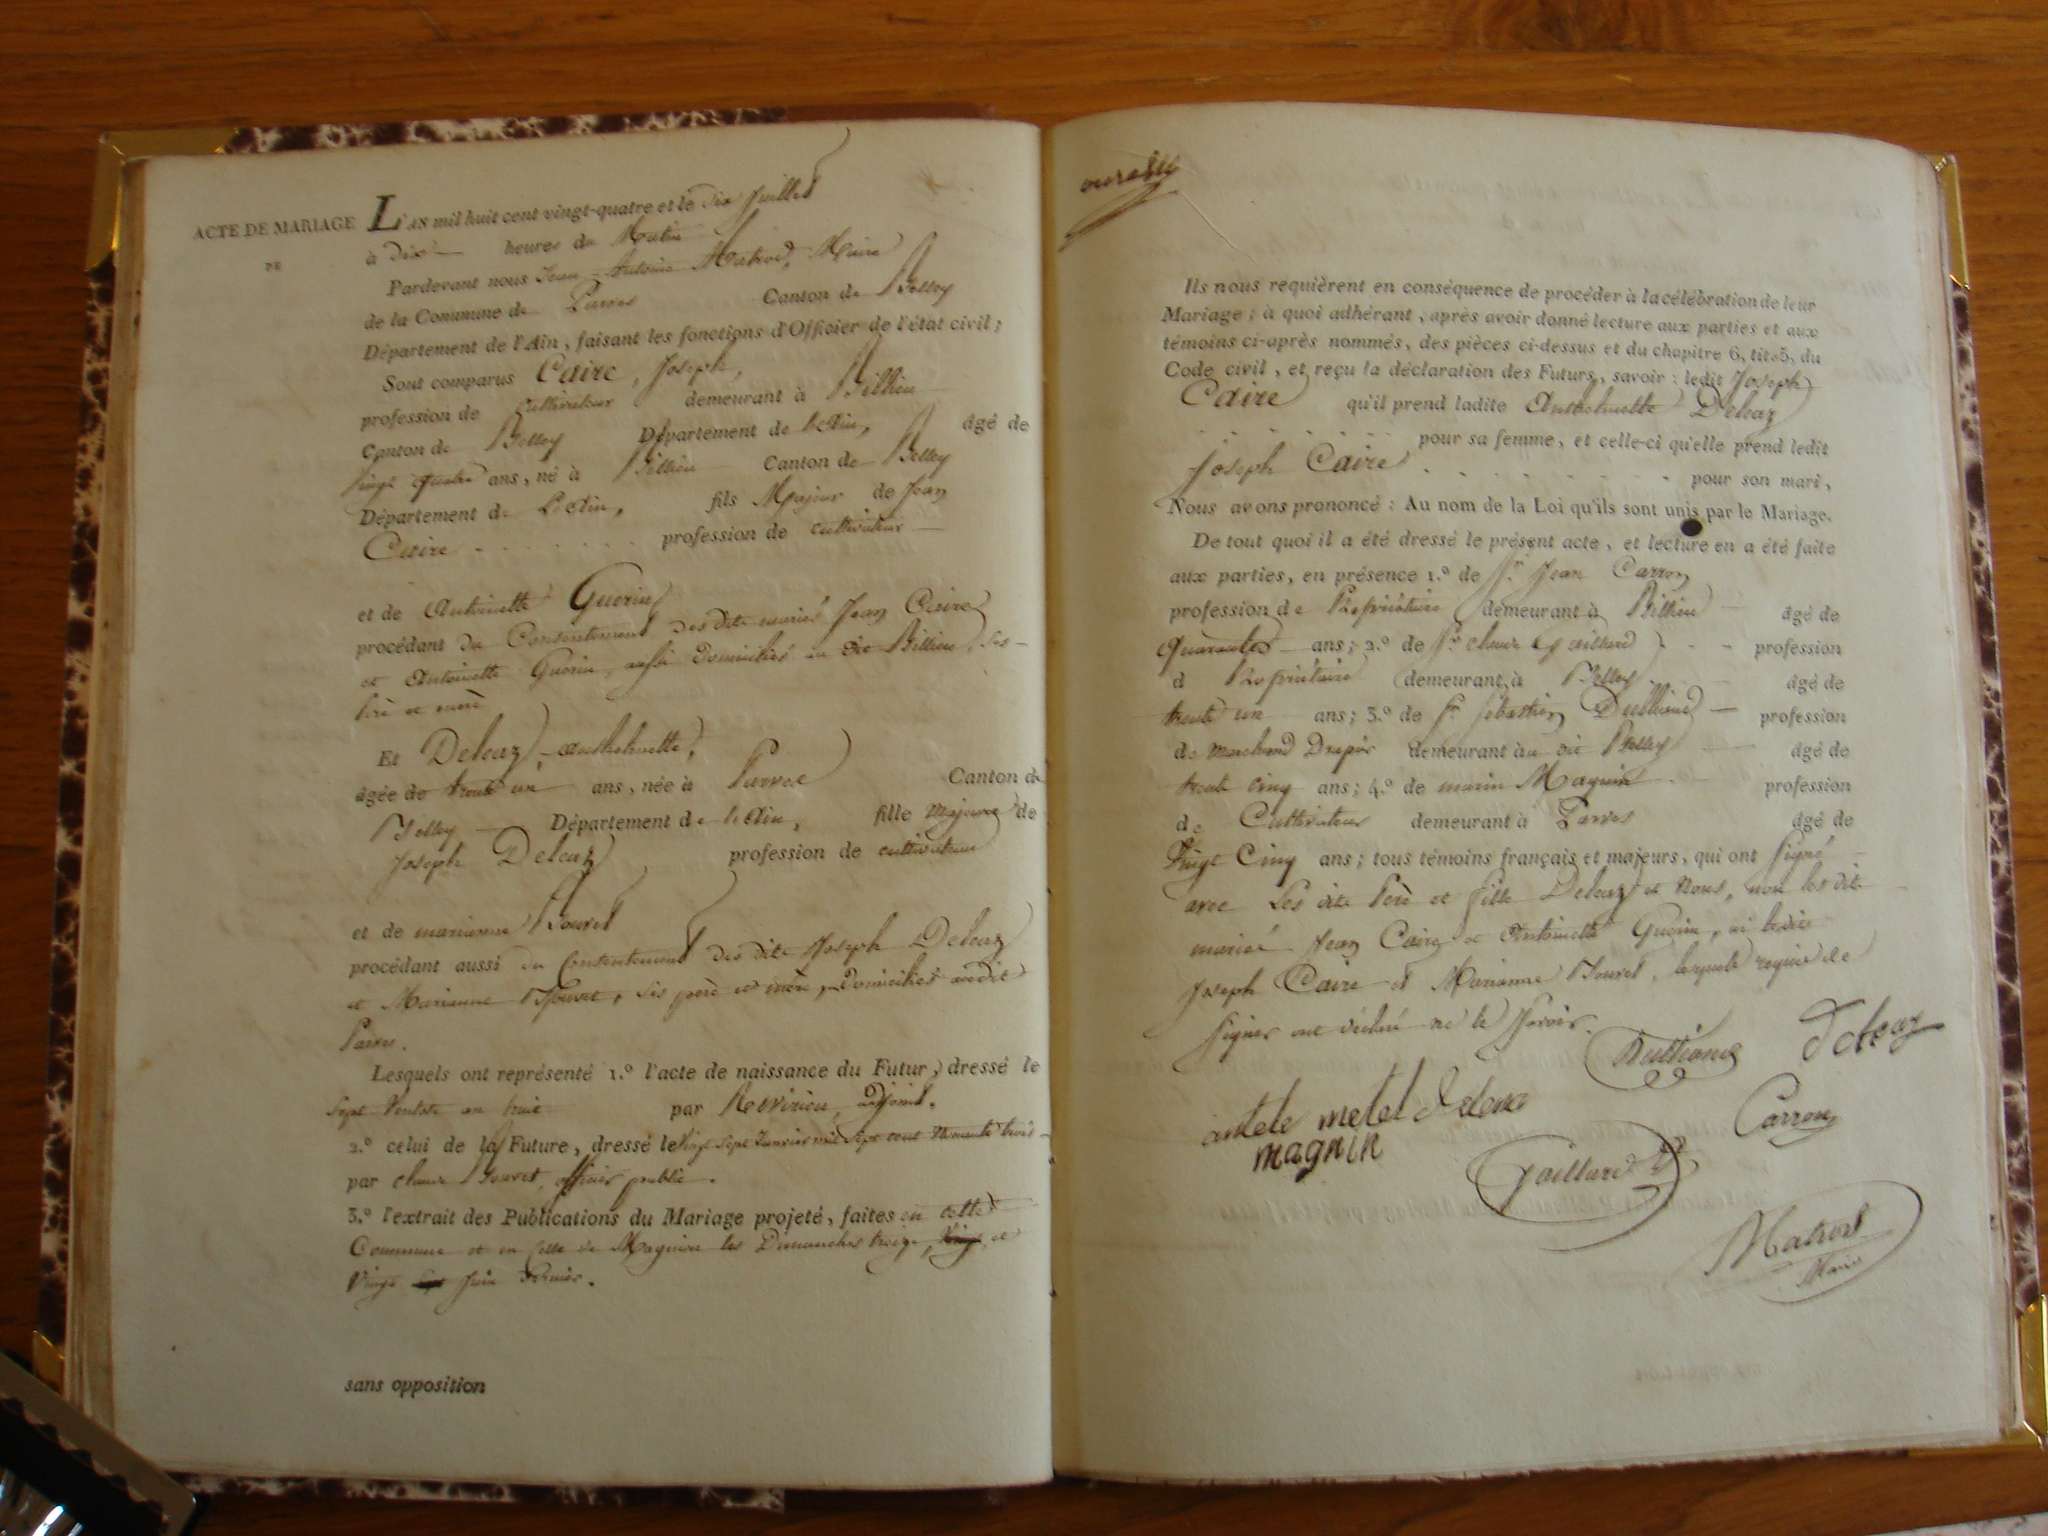 ACTE DE MARIAGE
DE
L'AN mil huit cent vingt-quatre et le dix Juillet
à Dix heures du Matin
Pardevant nous Jean Antoine Matrod, Maire
de la Commune de Parves Canton de Belley
Département de l'Ain, faisant les fonctions d'Officier de l'état civil;
Sont comparus Caire, Joseph,
profession de cultivateur demeurant à Billieu
Canton de Belley Département de L'Ain, âgé de
vingt quatre ans, né à Billieu Canton de Belley
Département de L'Ain, fils Majeur de Jean
Caire profession de cultivateur
et de Antoinette Guerin
procédant du Consentement des dits mariés Jean Caire
et Antoinette Guerin, aussi Domiciliés au dit Billieu, ses
Père et mère
Et Deleaz, anthelmette,
âgée de trente un ans, née à Parves Canton de
Belley Département de L'Ain, fille Majeure de
Joseph Deleaz profession de cultivateur
et de marianne
procédant aussi du Consentement des dits Joseph Deleaz
et Marianne ses père et mère, Domiciliés audit
Parves.
Lesquels ont représenté 1.º l'acte de naissance du Futur, dressé le
Sept Ventose an huit par adjoint.
2.º celui de la Future, dressé le vingt sept Janvier mil sept cent nonante trois
par claude officier public.
3.º l'extrait des Publications du Mariage projeté, faites en cette
Commune et en celle de Magnieu les Dimanches treize, et
vingt Juin dernier.
sans opposition
Ils nous requièrent en conséquence de procéder à la célébration de leur
Mariage; à quoi adhérant, après avoir donné lecture aux parties et aux
témoins ci-après nommés, des pièces ci-dessus et du chapitre 6, titre 5, du
Code civil, et reçu la déclaration des Futurs, savoir: ledit Joseph
Caire qu'il prend ladite Anthelmette Deleaz
pour sa femme, et celle-ci qu'elle prend ledit
Joseph Caire pour son mari,
Nous avons prononcé: Au nom de la Loi qu'ils sont unis par le Mariage.
De tout quoi il a été dressé le présent acte, et lecture en a été faite
aux parties, en présence 1.º de Sr Jean Carron
profession de Propriétaire demeurant à Billieu âgé de
quarante ans; 2.º de Sr claude Gaillard profession
d Propriétaire demeurant à Belley âgé de
trente un ans; 3.º de Sr Sébastien Dulliand profession
de marchand Drapier demeurant au dit Belley âgé de
trente cinq ans; 4.º de marin Magnin profession
de Cultivateur demeurant à Parves âgé de
Vingt Cinq ans; tous témoins français et majeurs, qui ont signé
avec Les dits Père et fille Deleaz et Nous, non les dits
mariés Jean Caire et Antoinette Guerin, ni ledit
Joseph Caire et Marianne lesquels requis de
signer ont déclaré ne le savoir.
Dulliand deleaz
antelemetel deleaz
magnin
Carron
Gaillard
Matrod
Maire